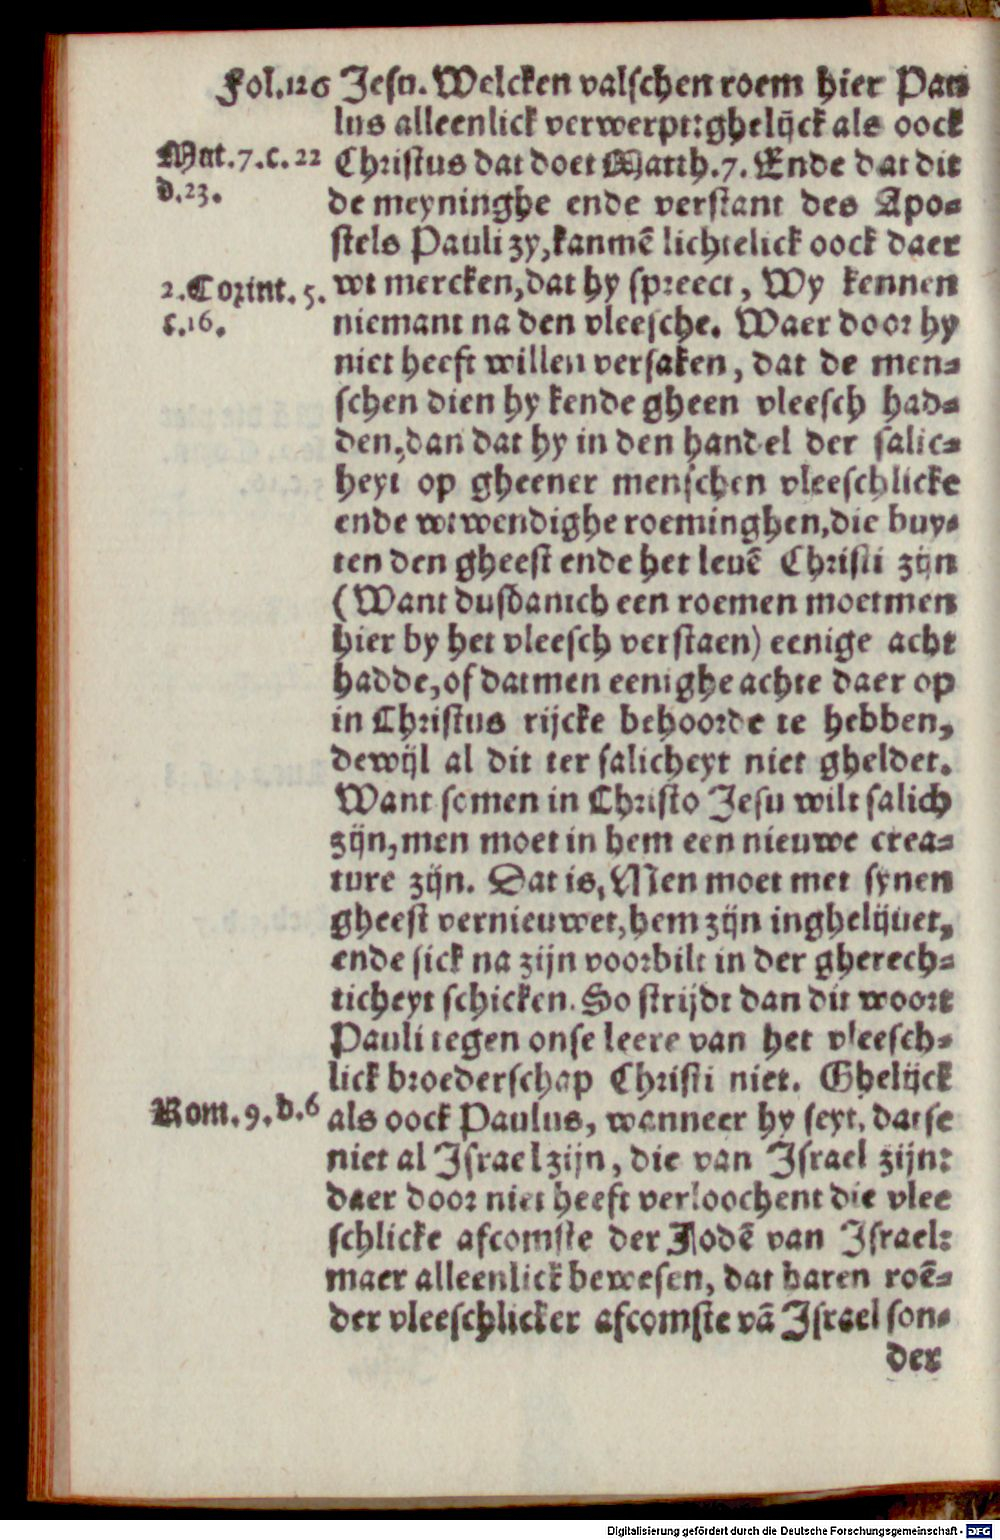 Fol.126 Jesu. Welcken valschen roem hier Pau
lus alleenlick verwerpt: ghelijck als oock
Mat.7.c.22 Christus dat doet Matth.7. Ende dat dit
d.23.
de meyninghe ende verstant des Apo-
stels Pauli zy, kanmē lichtelick oock daer
2.Corint.5. wt mercken, dat hy spreect, Wy kennen
c.16. niemant na den vleesche. Waer door hy
niet heeft willen versaken, dat de men-
schen dien hy kende gheen vleesch had-
den, dan dat hy in den handel der salic-
heyt op gheener menschen vleeschlicke
ende wtwendighe roeminghen, die buy-
ten den gheest ende het leuē Christi zijn
(Want dusdanich een roemen moetmen
hier by het vleesch verstaen) eenige acht
hadde, of datmen eenighe achte daer op
in Christus rijcke behoorde te hebben,
dewijl al dit ter salicheyt niet gheldet.
Want somen in Christo Jesu wilt salich
zijn, men moet in hem een nieuwe crea-
ture zijn. Dat is, Men moet met synen
gheest vernieuwet, hem zijn inghelijuet,
ende sick na zijn voorbilt in der gherech-
ticheyt schicken. So strijdt dan dit woort
Pauli tegen onse leere van het vleesch-
lick broederschap Christi niet. Ghelijck
Rom.9.b.6 als oock Paulus, wanneer hy seyt, datse
niet al Israel zijn, die van Israel zijn:
daer door niet heeft verloochent die vlee
schlicke afcomste der Jodē van Israel:
maer alleenlick bewesen, dat haren roē-
der vleeschlicker afcomste vā Israel son-
der
Digitalisierung gefördert durch die Deutsche Forschungsgemeinschaft - DFG